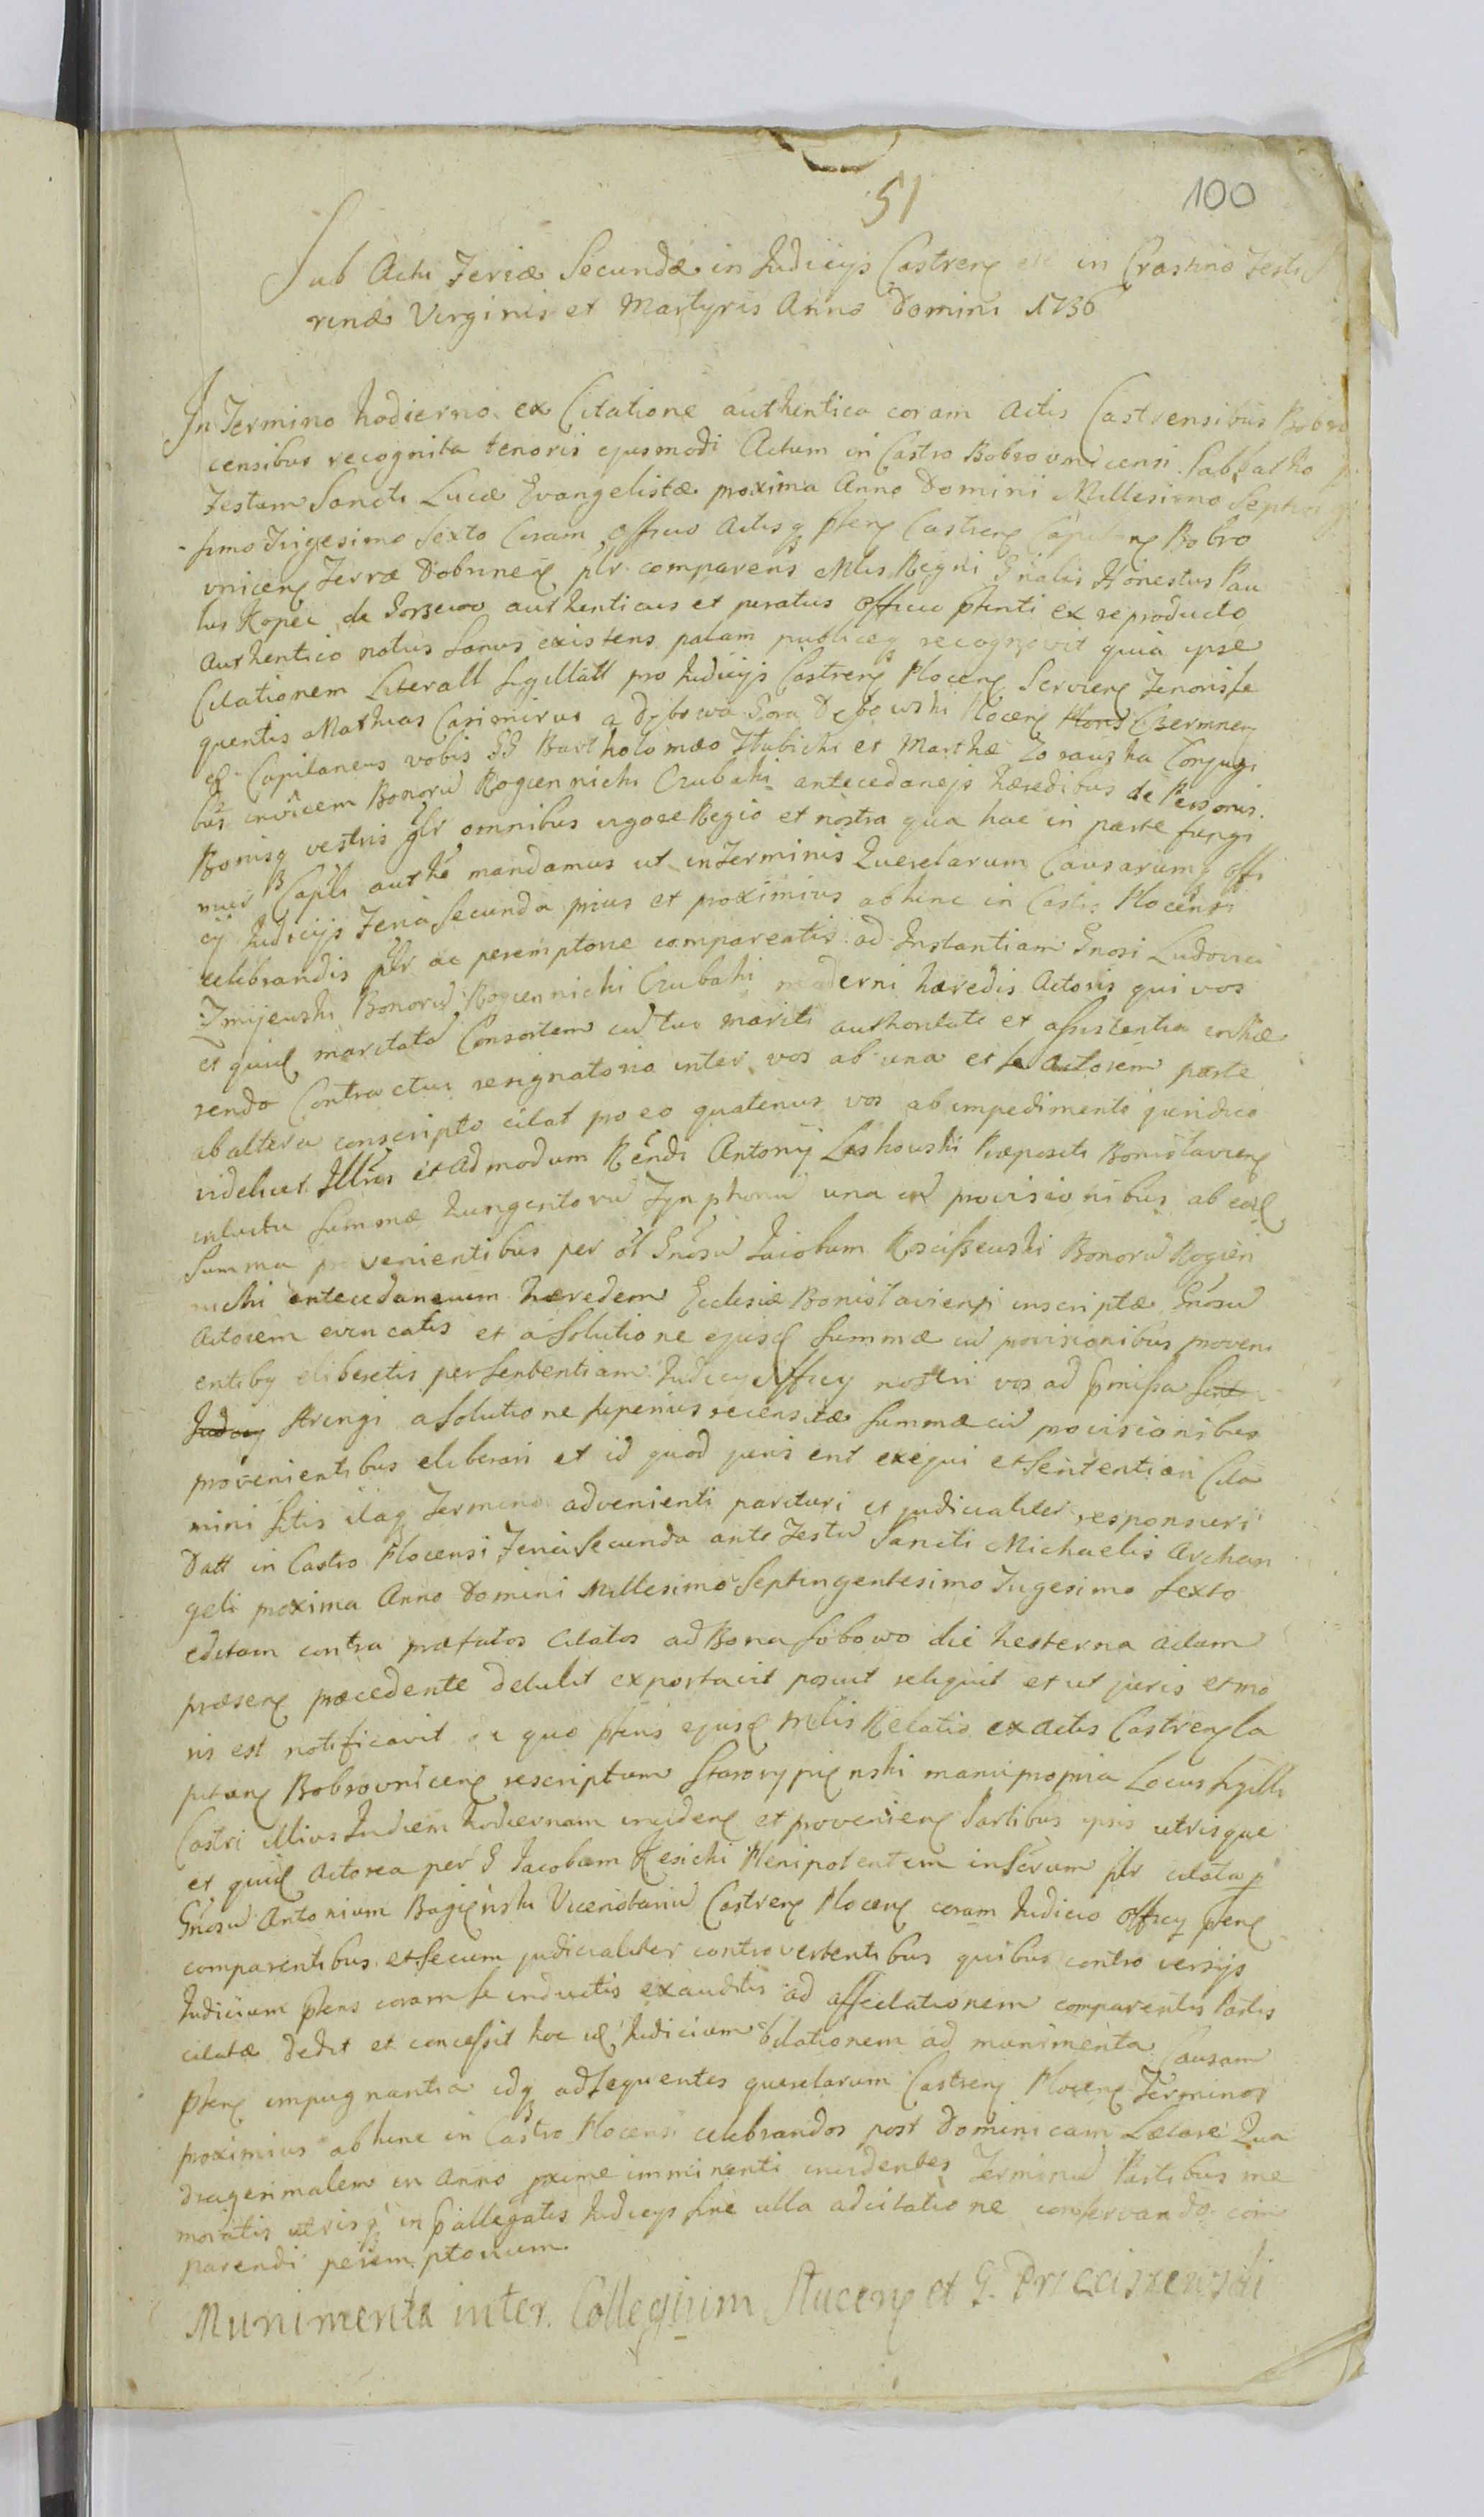 51
100
Sub Actu Feriæ Secundæ in Judicijs Castren in Crastino Festi
rinæ Virginis et Martyris Anno Domini 1736
In Termino hodierno ex Citatione authentica coram Actis Castrensibus Bobro
censibus recognita tenoris ejusmodi Actum in Castro Bobrovnicensi Sabbatho
Festum Sancti Lucæ Evangelistæ proxima Anno Domini Millesimo Septin
simo Trigesimo Sexto Coram Officio Actisq pten Castren Capitan Bobro
vnicen Terræ Dobrinen plr comparens Mlis Regni Gnalis Honestus Pau
lus Kopéc de authenticus et juratus Officio ptenti ex reproducto
Authentico notus Sanus existens palam publiceq recognovit quia ipse
Citationem Literall Sigillatt pro Judicijs Castren Plocen Servien Tenoris se
quentis Mathias Casimirus a Dębowa Gora Dębowski Plocen Czermnen
Capitaneus vobis GG Bartholomæo et Marthæ Conjugi
bus invicem Bonorũ Rogiennichi Czubahi antecedaneis hæredibus de Personis.
Bonisq vestris glr omnibus vigore Regio et nostra qua hac in parte fungi
mur Capli authe mandamus ut in Terminis Querelarum Causarumq offi
cÿ Judicijs Feria Secunda prius et proximius abhinc in Castro Plocensi
celebrandis plr ac peremptorie compareatis ad Instantiam Gnosi Ludovici
Zmijewski Bonorũ Rogiennichi Czubahi moderni hæredis Actoris qui vos
et quid maritatã Consortem cũ tui mariti authoritate et assistentia inhæ
rendo Contractui resignatorio inter vos ab una et se Actorem parte
ab altera conscripto citat pro eo quatenus vos ab impedimento juridico
videlicet Illtris et Admodum Rndi Antonij Leskowski Præpositi Bonislavien
intuitu Summæ Zungentorũ Tynphorũ una cũ provisionibus ab ead
Summa provenientibus per ol Gnosũ Jacobum Rosciszewski Bonorũ Rogien
nichi antecedaneum hæredem Ecclesiæ Bonislaviensi inscriptæ Gnosũ
Actorem evincatis et a Solutione ejusd Summæ cũ provisionibus proveni
entiby eliberetis per Sententiam Judicij Officij nostri vos ad pmissa
Stringi a Solutione superius recensitæ Summæ cũ provisionibus
provenientibus eliberari et id quod juris erit exequi et Sententiari Cita
mini Sitis itaq Termino advenienti parituri et judicialiter responsuri
Datt in Castro Plocensi Feria Secunda ante Festũ Sancti Michaelis Archan
geli proxima Anno Domini Millesimo Septingentesimo Trigesimo Sexto
editam contra præfatos Citatos ad Bona Sobowo die hesterna actum
præsen præcedente detulit exportavit posuit reliquit et ut juris et mo
ris est notificavit de quo ptens ejusd Mlis Relatio ex Actis Castren Ca
pitan Bobrovnicen rescriptum Starorypięnski manu propria Locus Sigilli
Castri illius In diem hodiernam inciden et provenien Partibus ipsis utrisque
et quid Actorea per G Jacobum Kęsicki Plenipotentem in Scrum plr citata p
Gnosũ Antonium Bagięnski Vicenotariũ Castren Plocen coram Judicio Officij pten
comparentibus et Secum judicialiter controvertentibus quibus controversijs
Judicium ptens coram se inductis exauditis ad affectationem comparentis Partis
citatæ dedit et concessit hoc id Judicium dilationem ad munimenta Causam
pten impugnantia idq ad Sequentes querelarum Castren Plocen Terminos
proximius abhinc in Castro Plocensi celebrandos post Dominicam Lætare Qua
dragesimalem in Anno pxime imminenti incidentes Terminũ Partibus me
moratis utrisq in pallegatis Judicijs sine ulla adcitatione conservando com
parendi peremptorium
Munimenta inter Collegium et G. Prieciszewski